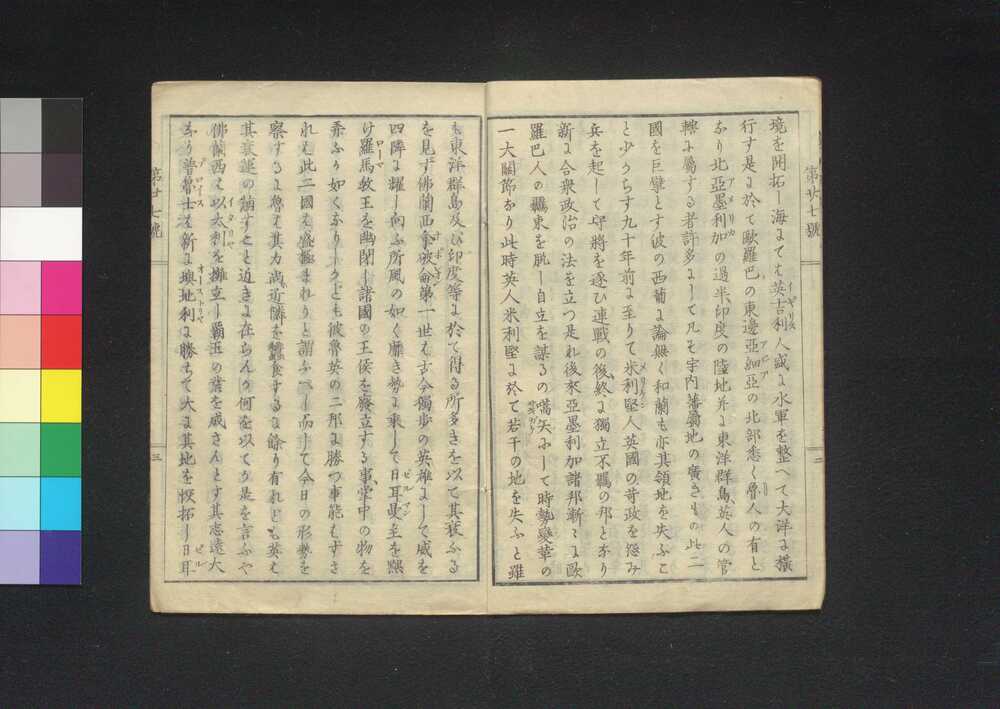 第廿七號
境を開拓し海にてハ英吉利人盛に水軍を整へて大洋に横
イギリス
行す是に於て歐羅巴の東邊亞細亞の北部悉く魯人の有と
アジア
なり北亞墨利加の過半印度の陸地并に東洋群島英人の管
アメリカ
轄に屬する者許多にして凡そ宇内藩屬地の廣きもの此二
國を巨擘とす彼の西葡に論無く和蘭も亦其領地を失ふこ
と少からす九十年前に至りて米利堅人英國の苛政を怨み
メリケン
兵を起して守將を逐ひ連戰の後終に獨立不羈の邦となり
新に合衆政治の法を立つ是れ後來亞墨利加諸邦漸々に歐
羅巴人の羈束を脱し自立を謀るの嚆矢にして時勢變革の
一大關節なり此時英人米利堅に於て若干の地を失ふと雖
二
も東洋群島及び印度等に於て得る所多きを以て其衰ふる
を見ず佛蘭西拿破侖第一世も古今獨歩の英雄にして威を
ナポレオン
四隣に耀し向ふ所風の如く靡き勢に乘して日耳曼主を黙
ゼルマン
け羅馬教王を幽閉し諸國の王侯を廢立する事掌中の物を
ローマ
弄ふか如くなりしかとも彼魯英の二邦に勝つ事能もすさ
れも此二國も盛極まれりと謂ふべし而して今日の形勢を
察するに魯も其力尚近隣を蠶食するに餘り有れども英も
其衰運の萌すこと近きに在らん何を以てか是を言ふや
佛蘭西ハ以太利を擁立し覇王の業を成さんとす其志遠大
イタリヤ
なり普魯士ハ新に墺地利に勝ちて大に其地を恢拓し日耳
プロイス
オーストリヤ
ゼル
第廿七號
三